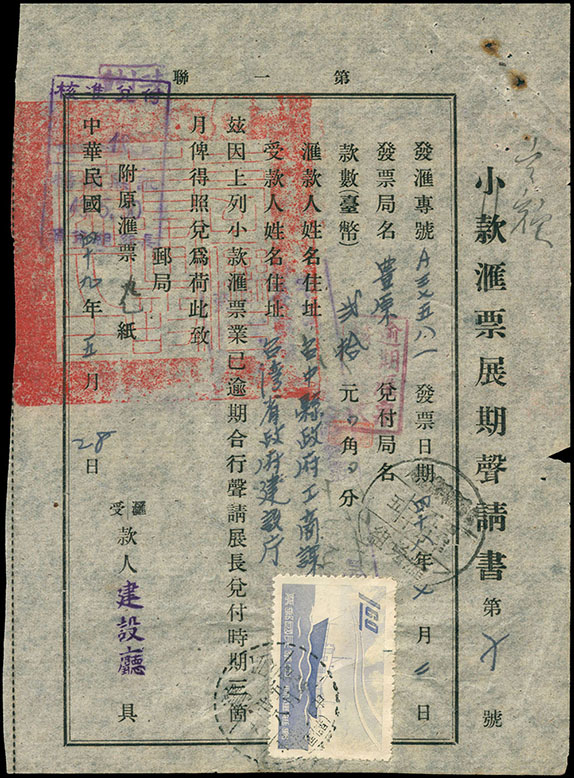 第一聯
定額
小款滙票展期聲請書 第 號
發滙專號 發票日期四十 年 月二日
發票局名 豊原 兌付局名
款數(臺幣) 貳拾元0角0分
滙款人姓名住址 台中縣政府工商課
受款人姓名住址 台湾省政府建設庁
茲因上列小款滙票業已逾期合行聲請展長兌付時期三箇
月俾得照兌爲荷此致
郵局
附原滙票 紙
中華民國四十九年五月28日
滙受款人 建設廳 具
核准兌付
逾期
1.60